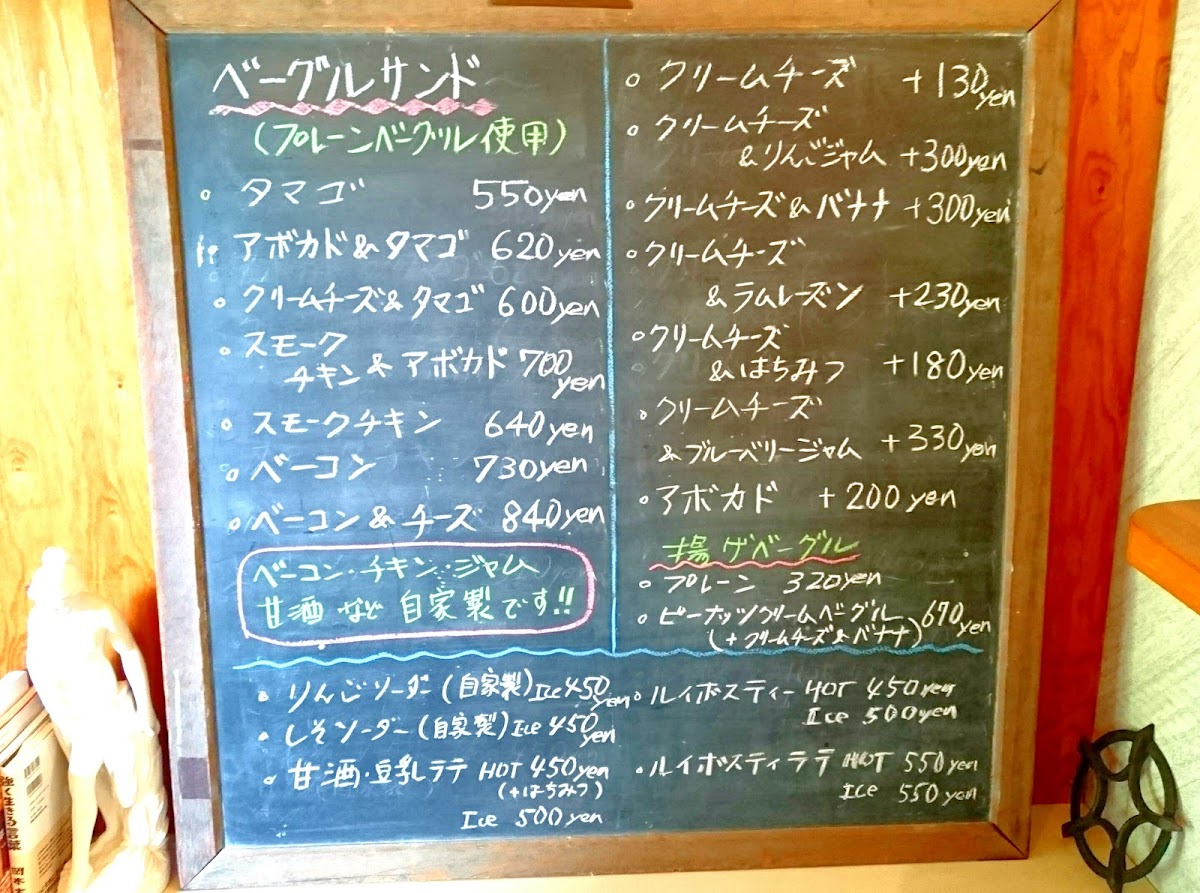 ベーグルサンド
(プレーンベーグル使用)
タマゴ 550yen
アボカド&タマゴ 620yen
クリームチーズ&タマゴ 600yen
スモーク
チキン&アボカド 700
yen
スモークチキン 640yen
ベーコン 730yen
ベーコン&チーズ 840yen
ベーコン・チキン・ジャム
甘酒など自家製です!!
クリームチーズ +130yen
クリームチーズ
&りんごジャム +300yen
クリームチーズ&バナナ +300yen
クリームチーズ
&ラムレーズン +230yen
クリームチーズ
&はちみつ +180yen
クリームチーズ
&ブルーベリージャム +330yen
アボカド +200yen
揚げベーグル
プレーン 320yen
ピーナッツクリームベーグル 670yen
(+クリームチーズ&バナナ)
りんごソーダー(自家製)Ice450yen
しそソーダー(自家製)Ice 450yen
甘酒・豆乳ラテ HOT 450yen
(+はちみつ)
Ice 500yen
ルイボスティー HOT 450yen
Ice 500yen
ルイボスティラテ HOT 550yen
Ice 550yen